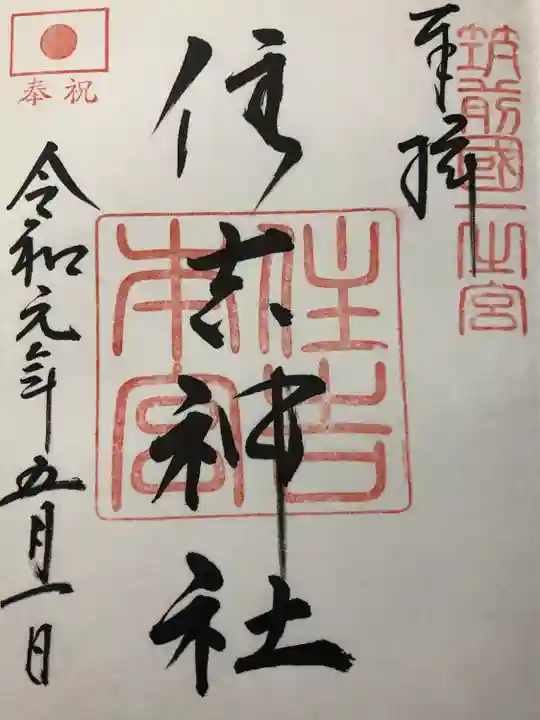 筑前國一之宮
奉拝
住吉神社
住吉本宮
奉祝
令和元年五月一日